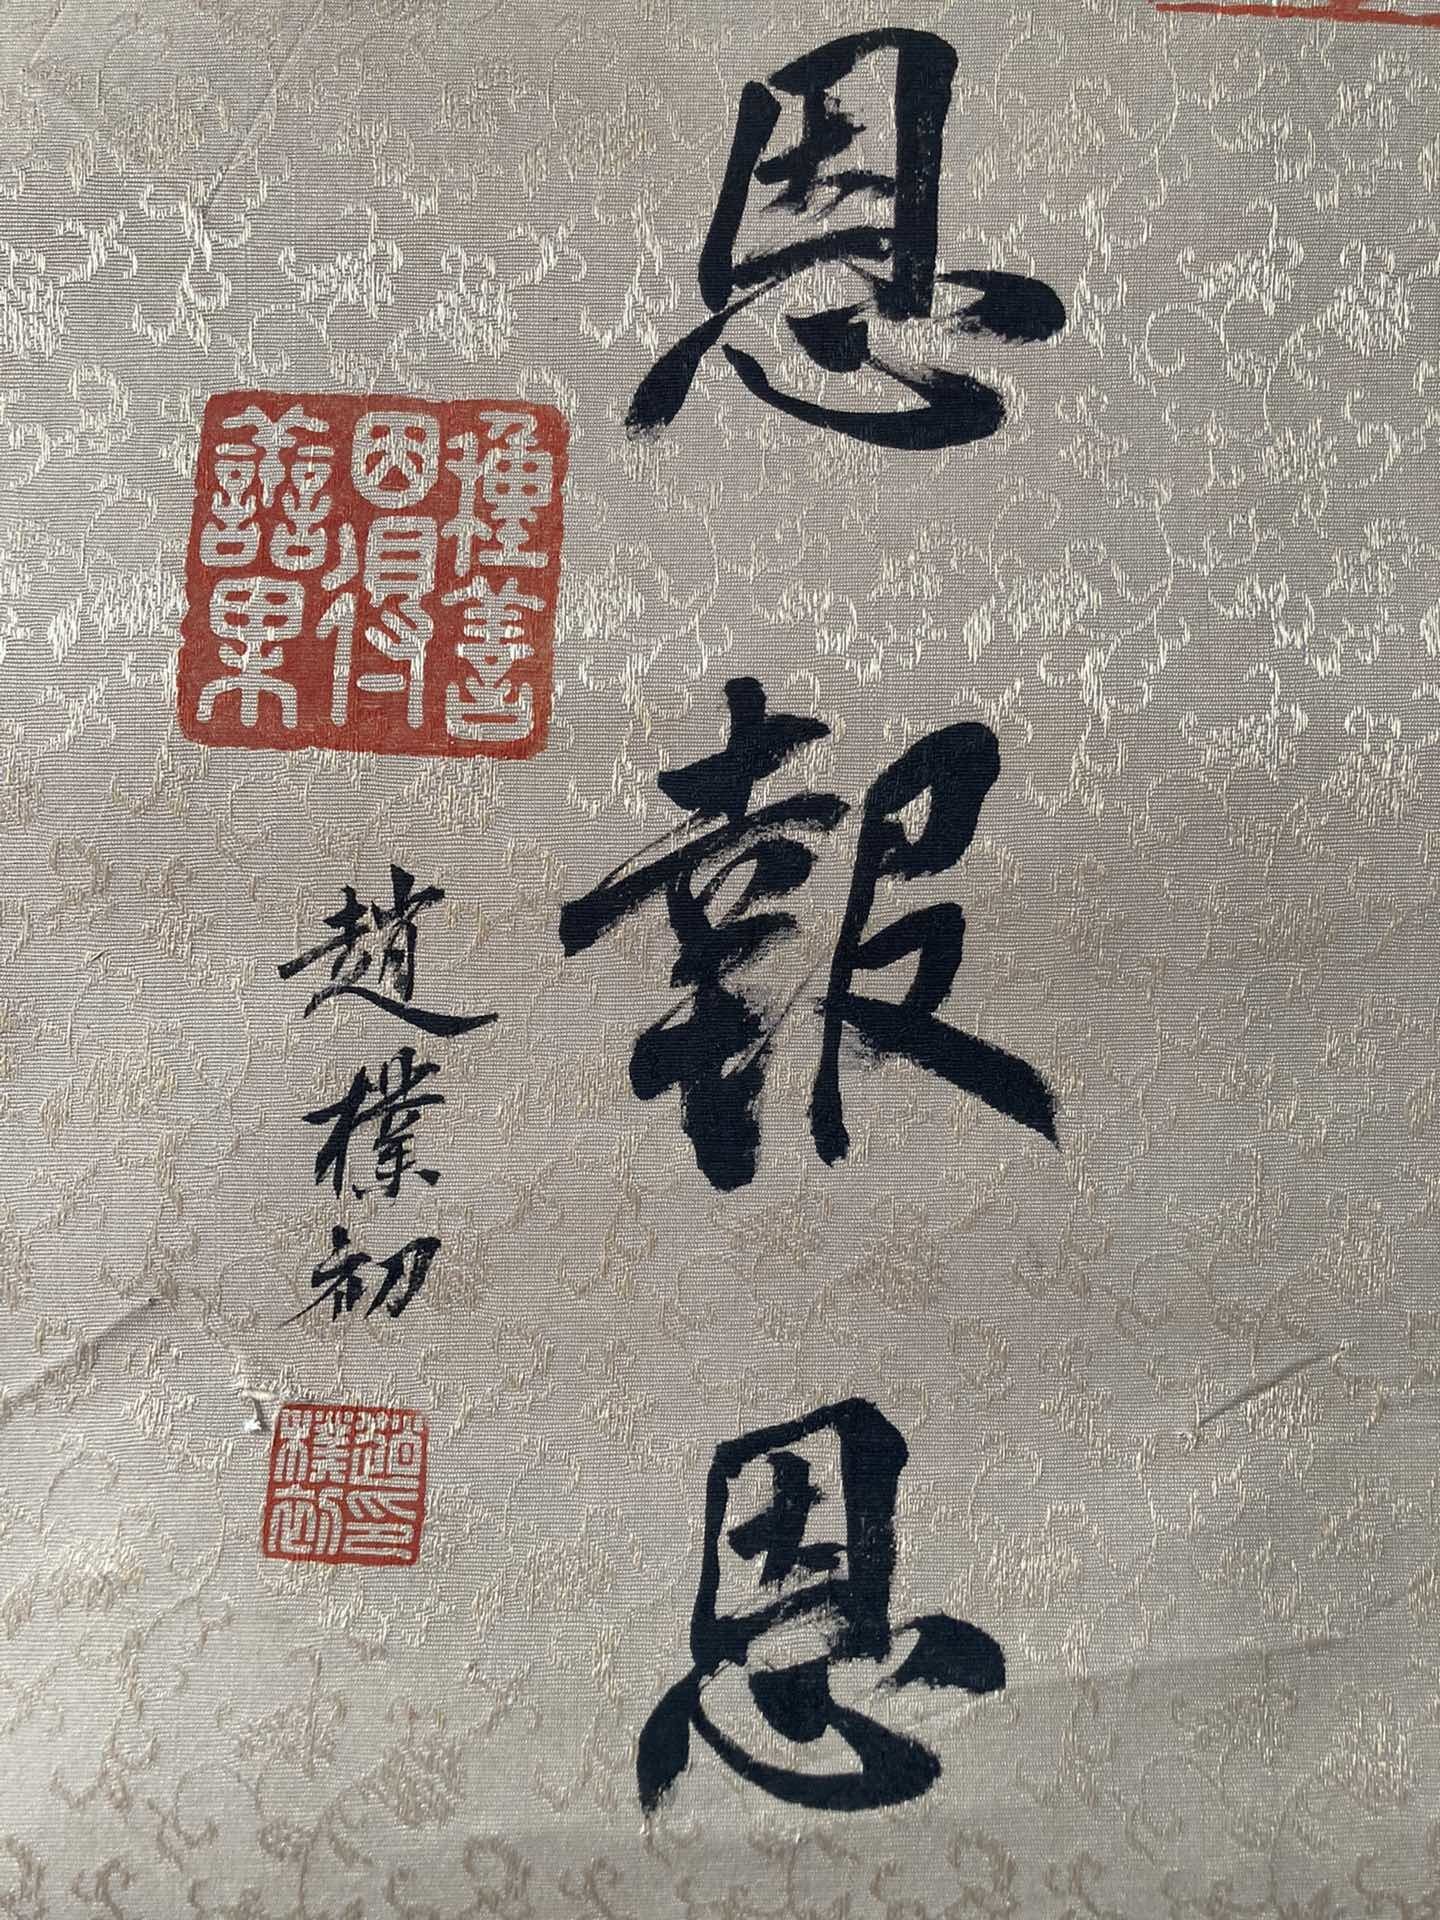 恩報恩
種善因須付善果
趙樸初
趙樸初印